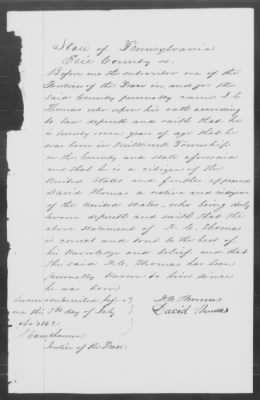 State of Pennsylvania
Erie County ss.
Before me the subscriber one of the
Justices of the Peace in and for the
said County personally came F. C.
Thomas who upon his oath according
to law deposeth and saith that he
is twenty one years of age that he
was born in Millcreek Township
in the County and State aforesaid
and that he is a citizen of the
United States and further appeared
David Thomas a native and citizen
of the United States, who being duly
sworn deposeth and saith that the
above statement of F. C. Thomas
is correct and true to the best of
his knowledge and belief and that
the said F. C. Thomas has been
personally known to him since
he was born
Sworn & subscribed before
me this 5th day of July
1862
F. C. Thomas
David Thomas
Justice of the Peace